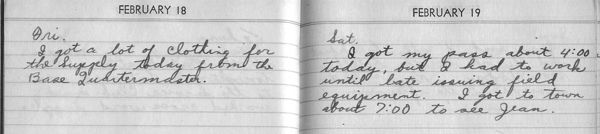 FEBRUARY 18
Fri.
I got a lot of clothing for
the supply today from the
Base Quartermaster.
FEBRUARY 19
Sat.
I got my pass about 4:00
today, but I had to work
until late issuing field
equipment. I got to town
about 7:00 to see Jean.